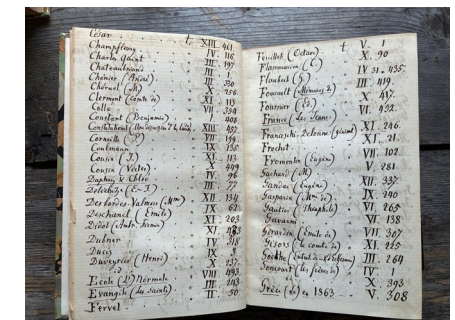 César t. XIII. 461.
Champfleury IV. 116
Charles Quint III. 197
Chateaubriand III. 1
Chénier (André) IX. 350
Chéruel (M) X. 256
Clermont (Comte de) XI. 113
Collé VII. 334
Constant (Benjamin) 1. 408
XIII. 457
Corneille (P) VII. 199
Coulmann IX. 135
Cousin (J.) XI. 113
Cousin (Victor) X. 449
Daphnis & Chloé IV. 96
Delécluze (E-J.) III. 77
Desbordes-Valmore (Mme) XII. 134
Deschanel (Emile) IX. 62
Didot (Amb. Firmin) XI. 203
XI. 423
Dubner IV. 318
Ducis IX.
Duveyrier (Henri) X. 237
id VIII. 493
Ecole (L') Normale III. 243
Evangile (les Saints) II. 50
Fervel
Feuillet (Octave) t. V. 1
Flammarion (C) X. 90
Flaubert (G) IV 31. 435.
Foucault (Mémoires) III. 419
Fournier (Ed.) X. 417.
France (Les Jeanne) VI. 452.
Franceschi-Delonne (général) XI. 246.
Frochot XI. 21.
Fromentin (Eugène) VII. 102.
Gachard (M) V. 281
Gandar (Eugène) XII. 337.
Gasparin (Mme de) IX. 240
Gautier (Théophile) VI. 265
Gavarni VI. 138
Girardin (Emile de) VII. 307
Gisors (le comte de) XI. 225
Goethe III. 264
Goncourt (les frères de) IV. 1
id X. 393
Grèce (la) en 1863 V. 308